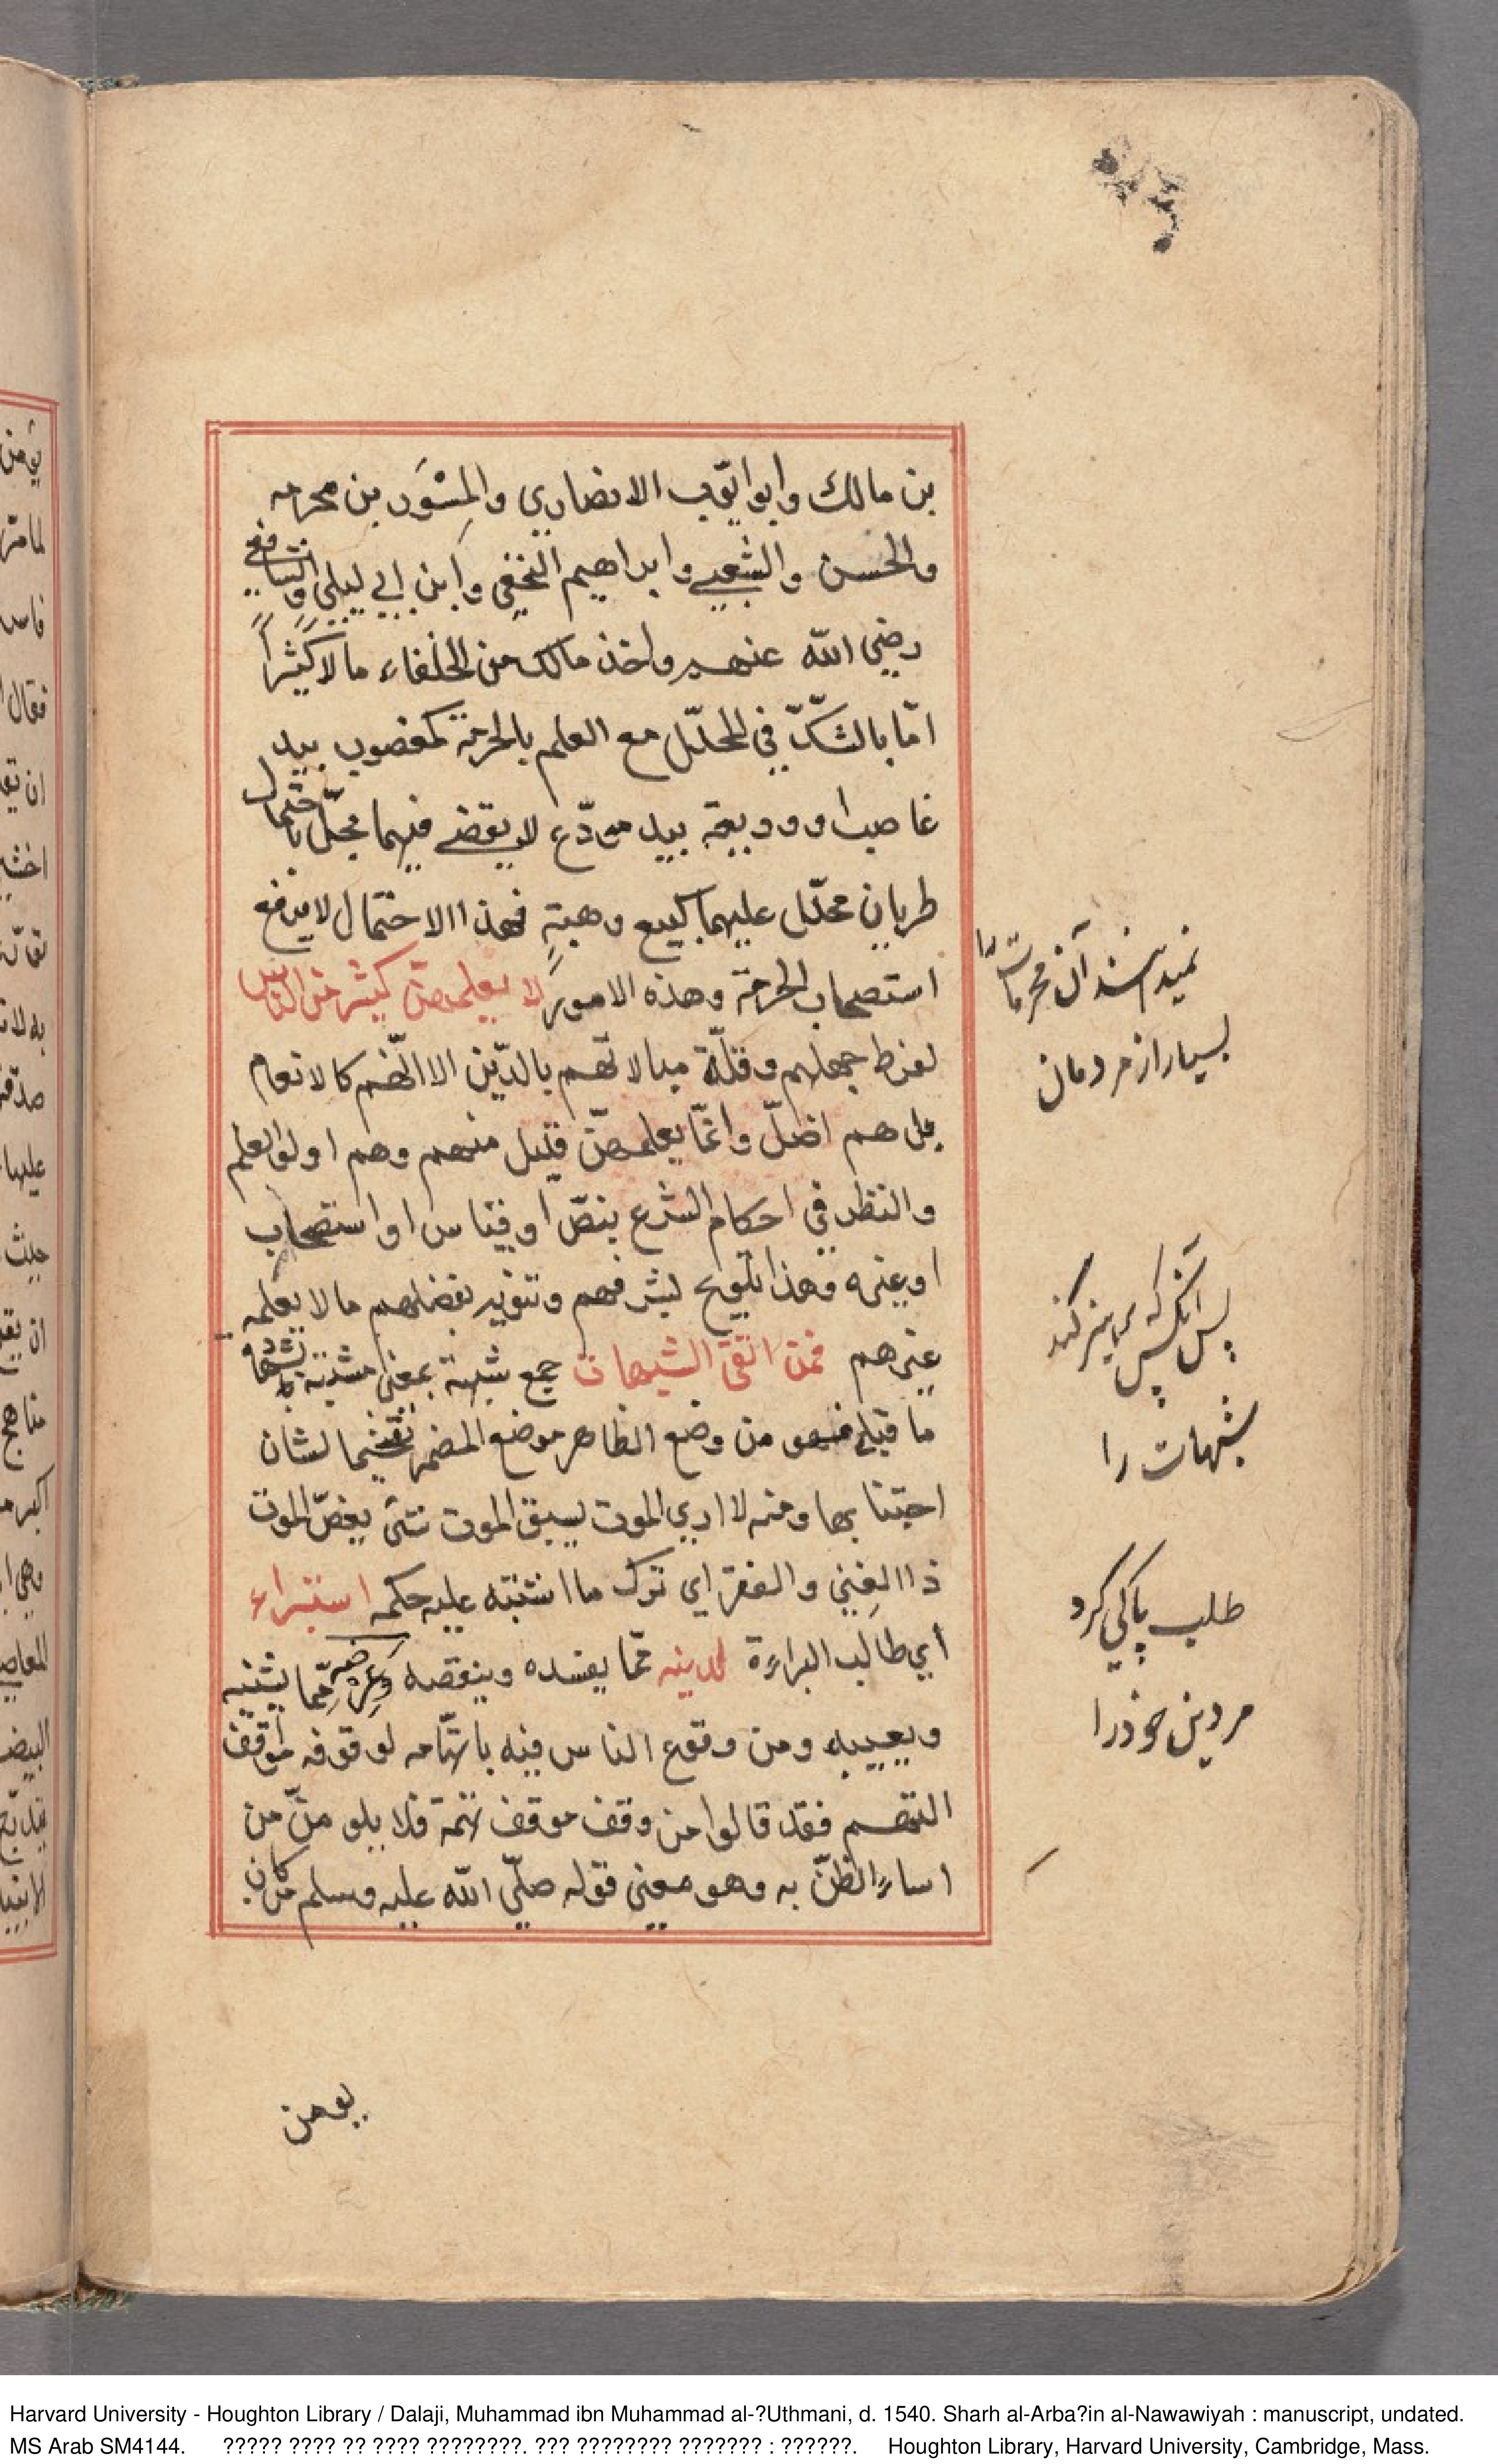 بن مالك وابو ايّوب الانصاري والمِسْوَر بن مخرمه
والحسن والشعبي وابراهيم النخعي وابن ابي ليلى والشافعي
رضي الله عنهم واخذ مالك من الخلفاء مالا كثيراً
امّا بالشكّ في المحلّل مع العلم بالحرمة كمغصوب بيد
غاصب او وديعة بيد مودّع لا يقضى فيهما بحلّ باحتمال
طريان محلّل عليهما كبيع وهبةٍ فهذا الاحتمال لا يدفع
استصحاب الحرمة وهذه الامور لا يعلمهنّ كثير من الناس
لفرط جهلهم وقلّة مبالاتهم بالدّين الا انّهم كالانعام
بل هم اضلّ وانّما يعلمهنّ قليل منهم وهم اولو العلم
والنظر في احكام الشرع بنصّ او قياس او استصحاب
او غيره وهذا تلويح لشرفهم وتنويه بفضلهم ما لا يعلمه
غيرهم فمن اتقى الشبهات جمع شبهة بمعنى مشبهة
ما قبله فهو من وضع الظاهر موضع المضمر تفخيما لشان
اجتنابها ومنه لا ارى الموت يسبق الموت شئ يغصّ الموت
ذا الغِني والفقر اي ترك ما اشتبه عليه حكمه استبراء
أي طالب البراءة لدينه ممّا يفسده وينقصه وعرضه ممّا يشينه
ويعيبه ومن وقوع الناس فيه باتّهامه لوقوفه مواقف
التهم فقد قالوا من وقف موقف تهمة فلا يلومنّ من
اساء الظنّ به وهو معنى قوله صلّى الله عليه وسلم من كان
نميدانند آن محرمات را
بسيار از مردمان
پس آنكس كه پرهيز كند
شبهات را
طلب پاكي كرد
مر دين خود را
يومن
Harvard University - Houghton Library / Dalaji, Muhammad ibn Muhammad al-?Uthmani, d. 1540. Sharh al-Arba?in al-Nawawiyah : manuscript, undated.
MS Arab SM4144. ????? ???? ?? ???? ????????. ??? ???????? ??????? : ??????. Houghton Library, Harvard University, Cambridge, Mass.